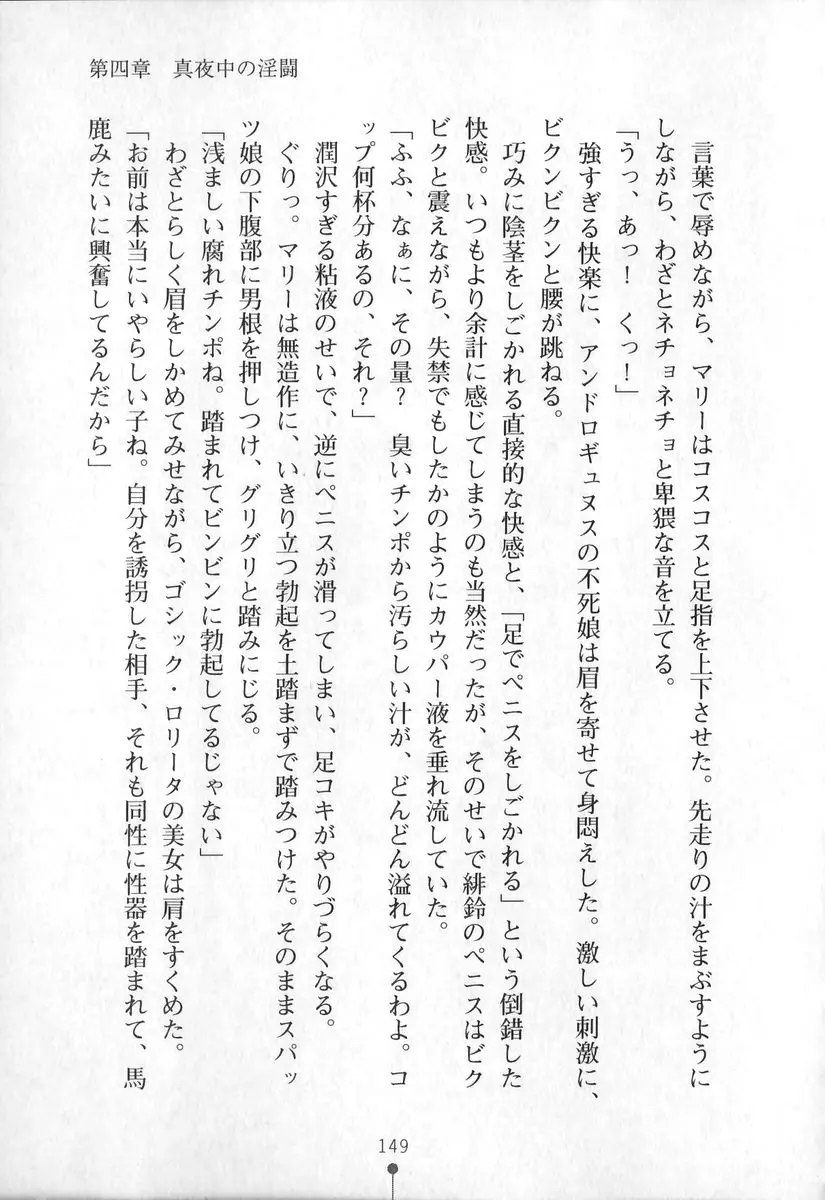 第四章　真夜中の淫闘
　言葉で辱めながら、マリーはコスコスと足指を上下させた。先走りの汁をまぶすように
しながら、わざとネチョネチョと卑猥な音を立てる。
「うっ、あっ！　くっ！」
　強すぎる快楽に、アンドロギュヌスの不死娘は眉を寄せて身悶えした。激しい刺激に、
ビクンビクンと腰が跳ねる。
　巧みに陰茎をしごかれる直接的な快感と、「足でペニスをしごかれる」という倒錯した
快感。いつもより余計に感じてしまうのも当然だったが、そのせいで緋鈴のペニスはビク
ビクと震えながら、失禁でもしたかのようにカウパー液を垂れ流していた。
「ふふ、なぁに、その量？　臭いチンポから汚らしい汁が、どんどん溢れてくるわよ。コ
ップ何杯分あるの、それ？」
　潤沢すぎる粘液のせいで、逆にペニスが滑ってしまい、足コキがやりづらくなる。
　ぐりっ。マリーは無造作に、いきり立つ勃起を土踏まずで踏みつけた。そのままスパッ
ツ娘の下腹部に男根を押しつけ、グリグリと踏みにじる。
「浅ましい腐れチンポね。踏まれてビンビンに勃起してるじゃない」
　わざとらしく眉をしかめてみせながら、ゴシック・ロリータの美女は肩をすくめた。
「お前は本当にいやらしい子ね。自分を誘拐した相手、それも同性に性器を踏まれて、馬
鹿みたいに興奮してるんだから」
149